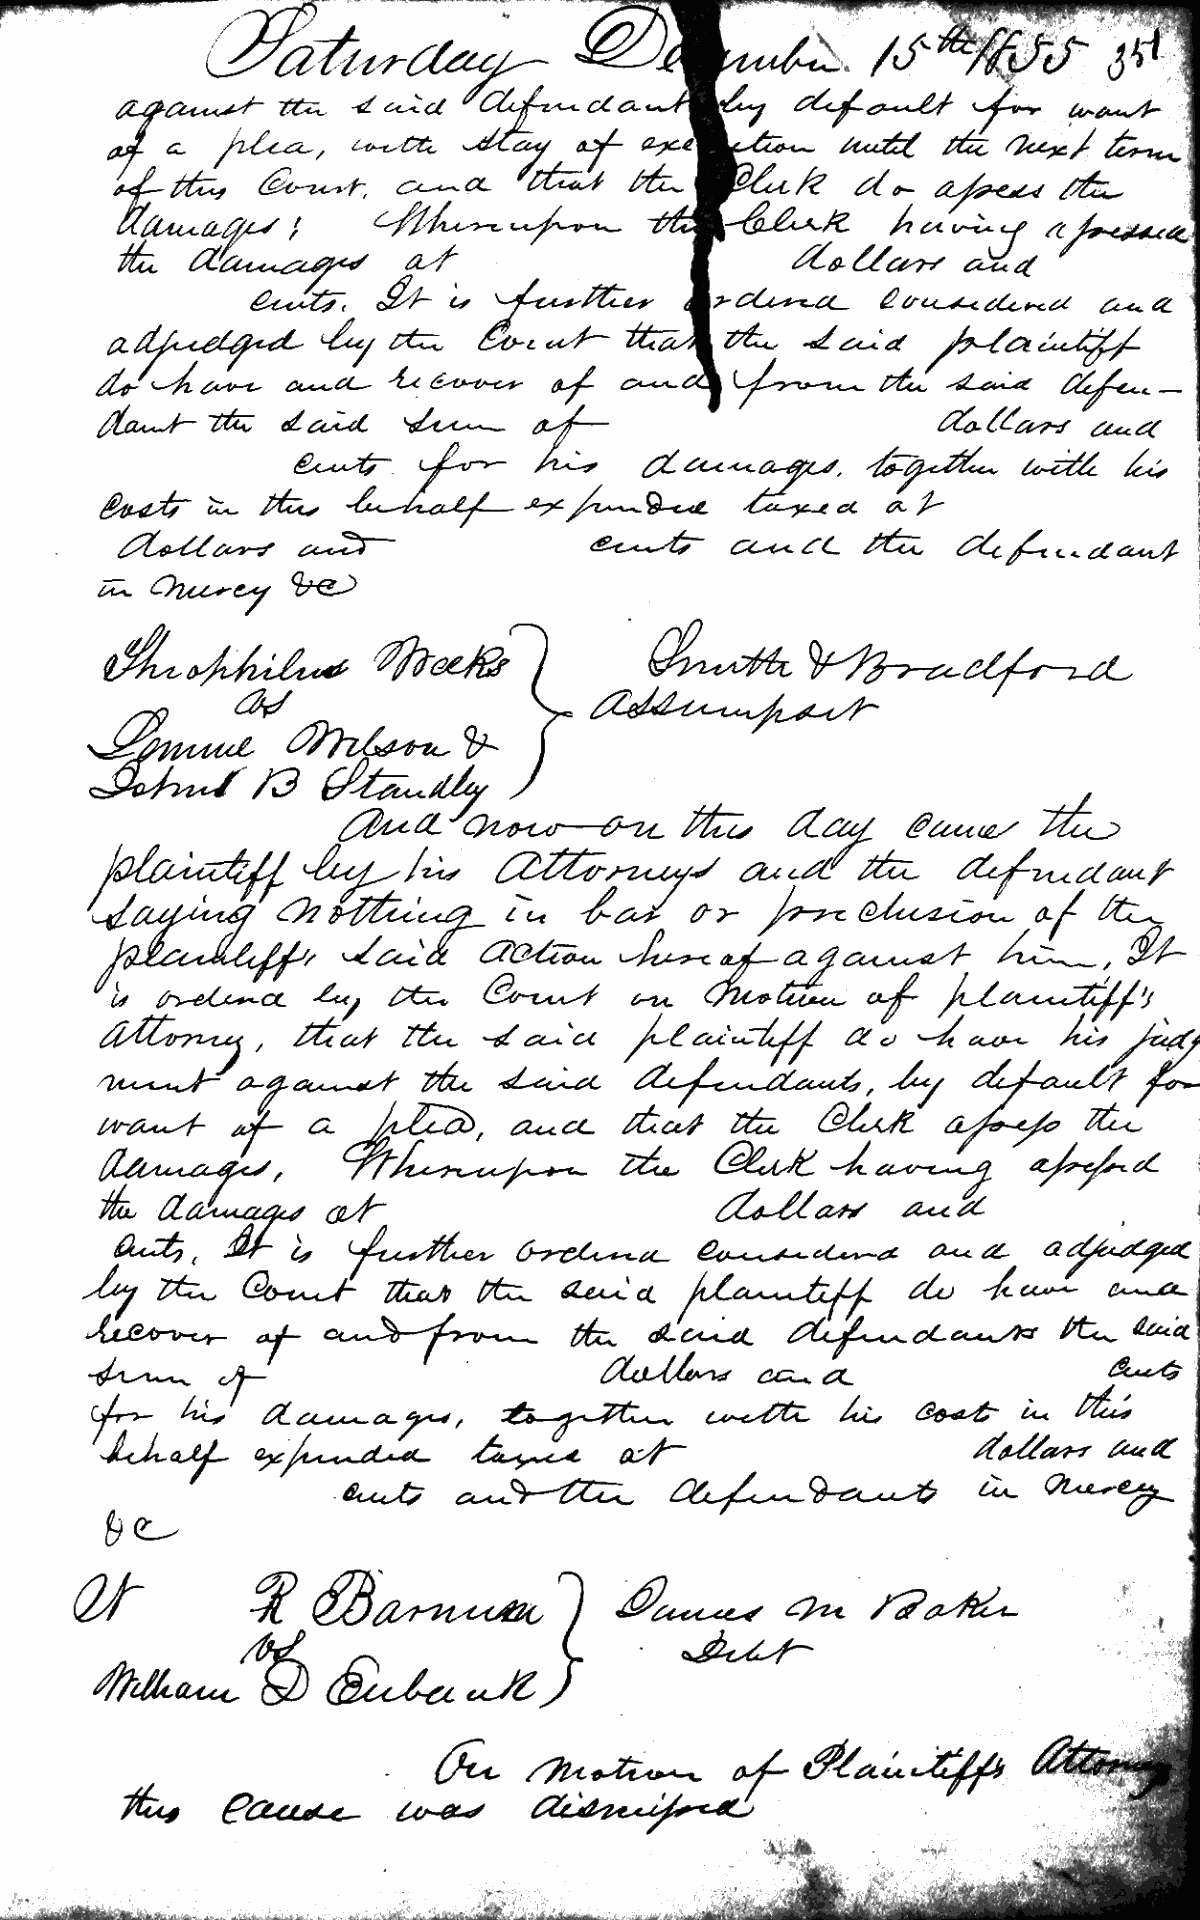 Saturday December 15th 1855 351
against the said defendant by default for want
of a plea, with stay of execution until the next term
of this Court, and that the Clerk do assess the
damages; Whereupon the Clerk having assessed
the damages at dollars and
cents. It is further ordered considered and
adjudged by the Court that the said plaintiff
do have and recover of and from the said defen-
dant the said sum of dollars and
cents for his damages, together with his
costs in this behalf expended taxed at
dollars and cents and the defendant
in mercy &c
Theophilus Weeks } Smith & Bradford
vs assumpsit
Lemuel Wilson &
B Standley
And now on this day came the
plaintiff by his Attorneys and the defendant
saying nothing in bar or preclusion of the
plaintiff's said action hereof against him, It
is ordered by the Court on Motion of plaintiff's
Attorney, that the said plaintiff do have his judg
ment against the said defendants, by default for
want of a plea, and that the Clerk assess the
damages. Whereupon the Clerk having assessed
the damages at dollars and
cents. It is further ordered considered and adjudged
by the Court that the said plaintiff do have and
recover of and from the said defendants the said
sum of dollars and cents
for his damages, together with his costs in this
behalf expended taxed at dollars and
cents and the defendants in mercy
&c
R Barnum } James M Baker
vs Debt
William D Eubank
On motion of Plaintiff's Attorney
this cause was dismissed